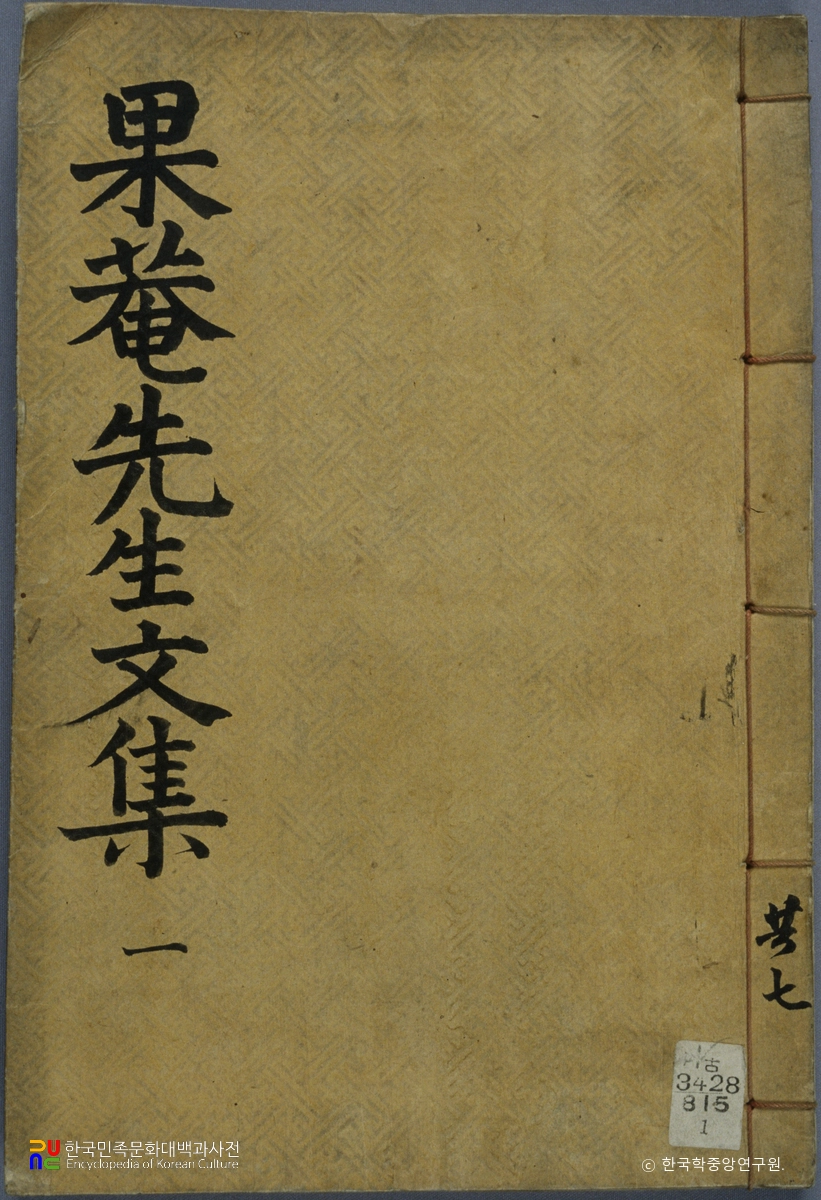 果菴先生文集 一
共七
古
3428
815
1
한국민족문화대백과사전
Encyclopedia of Korean Culture
© 한국학중앙연구원.